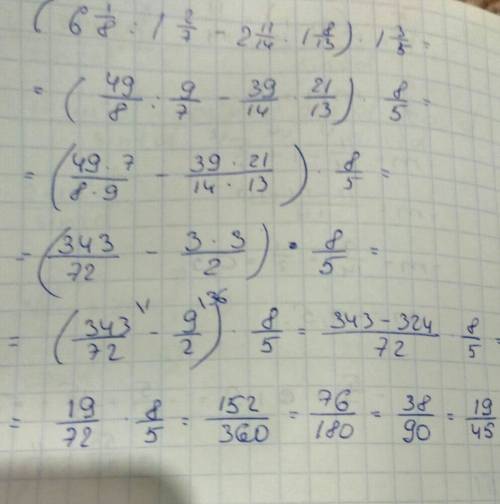 (6 1/8 : 1 2/7 - 2 11/14 · 1 8/13) · 1 3/5 =
= (49/8 : 9/7 - 39/14 · 21/13) · 8/5 =
= (49 · 7/8 · 9 - 39 · 21/14 · 13) · 8/5 =
= (343/72 - 3 · 3/2) · 8/5 =
= (343/72 \1 - 9/2 \36) · 8/5 = 343 - 324/72 · 8/5 =
= 19/72 · 8/5 = 152/360 = 76/180 = 38/90 = 19/45